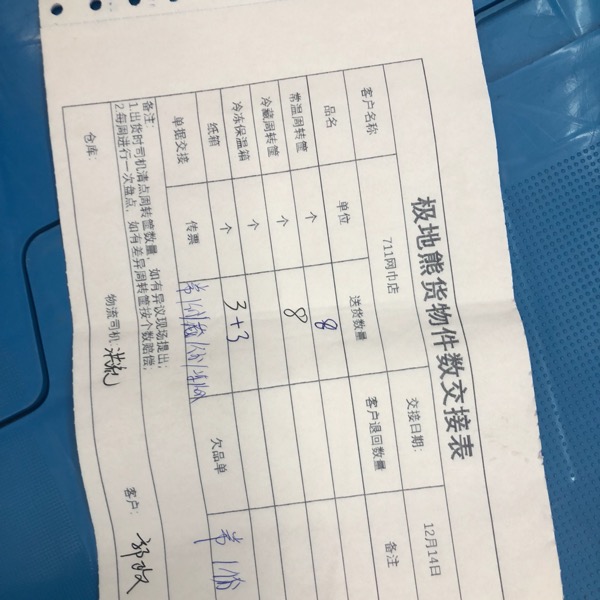 极地熊货物件数交接表
客户名称 711网巾店 交接日期: 12月14日
品名 单位 送货数量 客户退回数量 备注
常温周转筐 个 8
冷藏周转筐 个 8
冷冻保温箱 个 3+3
纸箱 个
单据交接 传票 欠品单
备注:
1.出货时司机清点周转筐数量,如有异议现场提出;
2.每周进行一次盘点,如有差异周转筐按个数赔偿;
仓库: 物流司机: 客户: